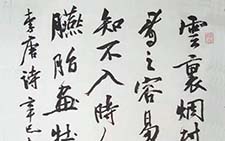 雲裏烟村
看之容易
知不入時人
臙脂畫牡
李唐詩辛巳